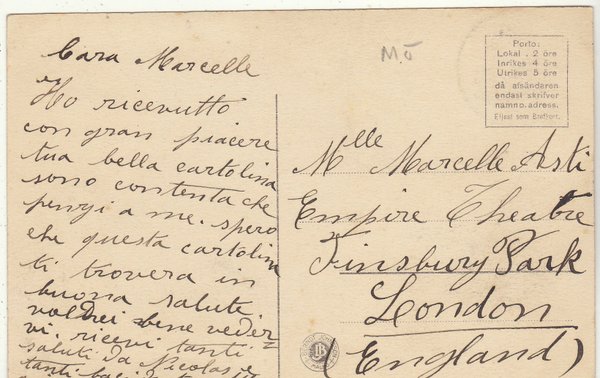 Cara Marcelle
Ho ricevutto
con gran piacere
tua bella cartolina
sono contenta che
penzi a me. spero
che questa cartolina
ti trovera in
buona salute
voldrei bene veder
vi. ricevi tanti
saluti da Nicolas
tanti baci
M.ö
Porto:
Lokal . 2 öre
Inrikes 4 öre
Utrikes 5 öre
då afsändaren
endast skrifver
namn o. adress.
Eljest som Brefkort.
Mlle Marcelle Asti
Empire Theatre
Finsbury Park
London
(England)